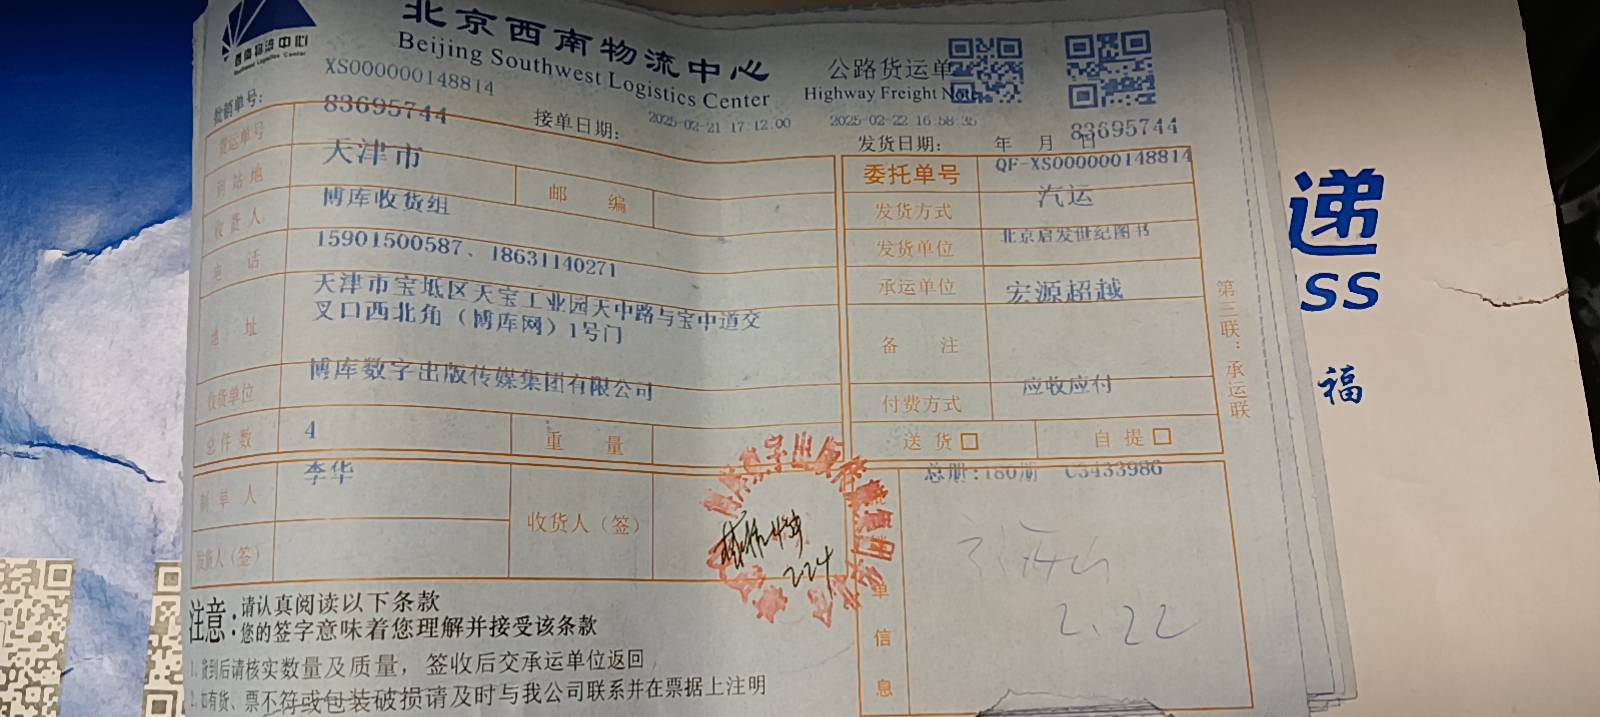 西南物流中心
Southwest Logistics Center
北京西南物流中心
Beijing Southwest Logistics Center
公路货运单
Highway Freight Note
XS000000148814
接单日期: 2025-02-21 17:12:00
2025-02-22 16:58:35
发货日期: 年 月 日
83695744
货运单号 83695744
到站地 天津市
邮 编
收货人 博库收货组
电 话 15901500587、18631140271
地 址 天津市宝坻区天宝工业园天中路与宝中道交
叉口西北角（博库网）1号门
收货单位 博库数字出版传媒集团有限公司
总件数 4
重 量
制单人 李华
发货人（签）
收货人（签）
2.24
委托单号 QF-XS000000148814
发货方式 汽运
发货单位 北京启发世纪图书
承运单位 宏源超越
备 注
付费方式 应收应付
送 货 □ 自 提 □
总册:180册 C3433986
单信息
2.22
第三联：承运联
注意: 请认真阅读以下条款
您的签字意味着您理解并接受该条款
1、货到后请核实数量及质量，签收后交承运单位返回
2、如有货、票不符或包装破损请及时与我公司联系并在票据上注明
递
SS
福